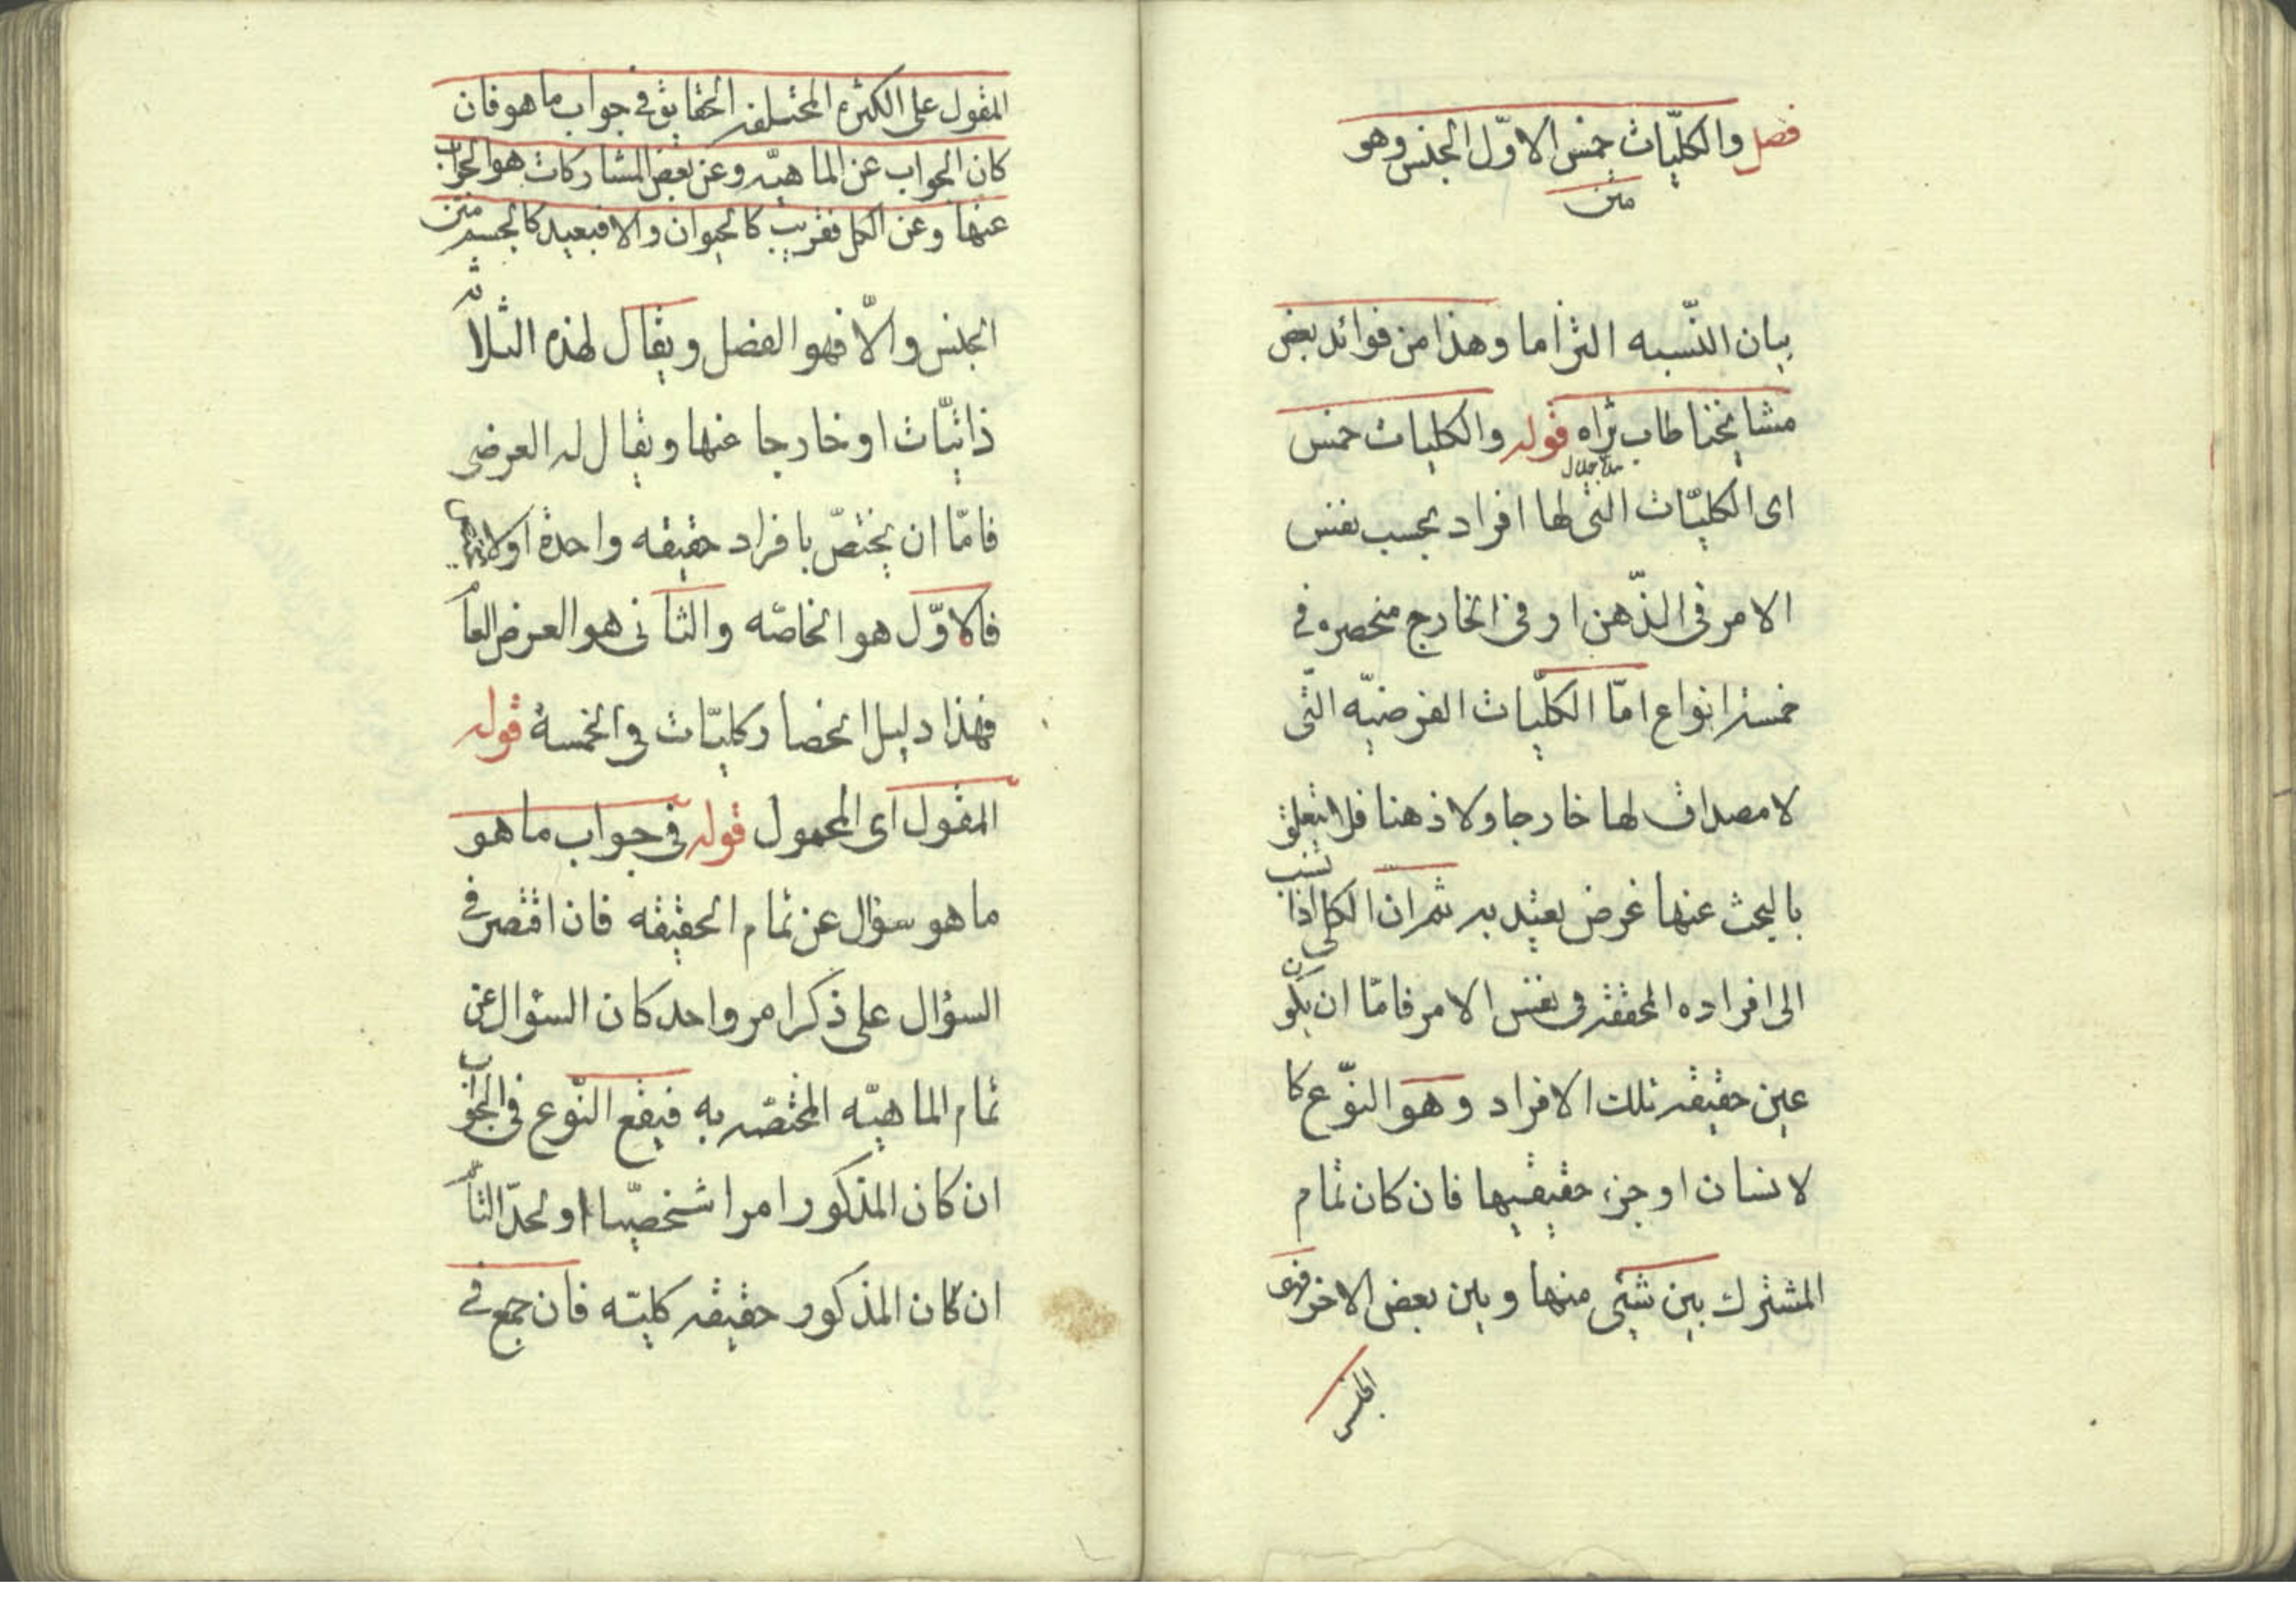 فصل والكليّات خمس الاوّل الجنس وهو
متن
بيان النّسبه التزاما وهذا من فوائد بعض
مشايخنا طاب ثراه قوله والكليات خمس
اى الكليّات التى لها افراد بحسب نفس
الامر فى الذّهن او فى الخارج منحصره فى
خمسة انواع امّا الكلّيات الفرضيّه الّتى
لا مصداق لها خارجا ولا ذهنا فلا يتعلق
بالبحث عنها غرض يعتد به ثم ان الكلى اذا نسب
الى افراده المحققه فى نفس الامر فامّا ان يكون
عين حقيقه تلك الافراد وهو النوّع كا
لانسان او جزء حقيقيها فان كان تمام
المشترك بين شيئى منها وبين بعض الاخر فهى
الجنس
المقول على الكثره المختلفه الحقايق فى جواب ما هو فان
كان الجواب عن الماهيّه وعن بعض المشاركات هو الجواب
عنها وعن الكل فقريب كالحيوان والا فبعيد كالجسم متن
الجنس والاّ فهو الفصل ويقال لهذه الثلاثه
ذاتيّات او خارجا عنها ويقال له العرضى
فامّا ان يختصّ بافراد حقيقه واحدة اولا
فالاوّل هو الخاصّه والثانى هو العرض العام
فهذا دليل انحصار كليّات فى الخمسة قوله
المقول اى المحمول قوله فى جواب ما هو
ما هو سؤال عن تمام الحقيقه فان اقتصر فى
السؤال على ذكر امر واحد كان السؤال عن
تمام الماهيّه المختصّه به فيقع النّوع فى الجواب
ان كان المذكور امرا شخصيّا او لحدّ التام
ان كان المذكور حقيقه كليّه فان جمع فى